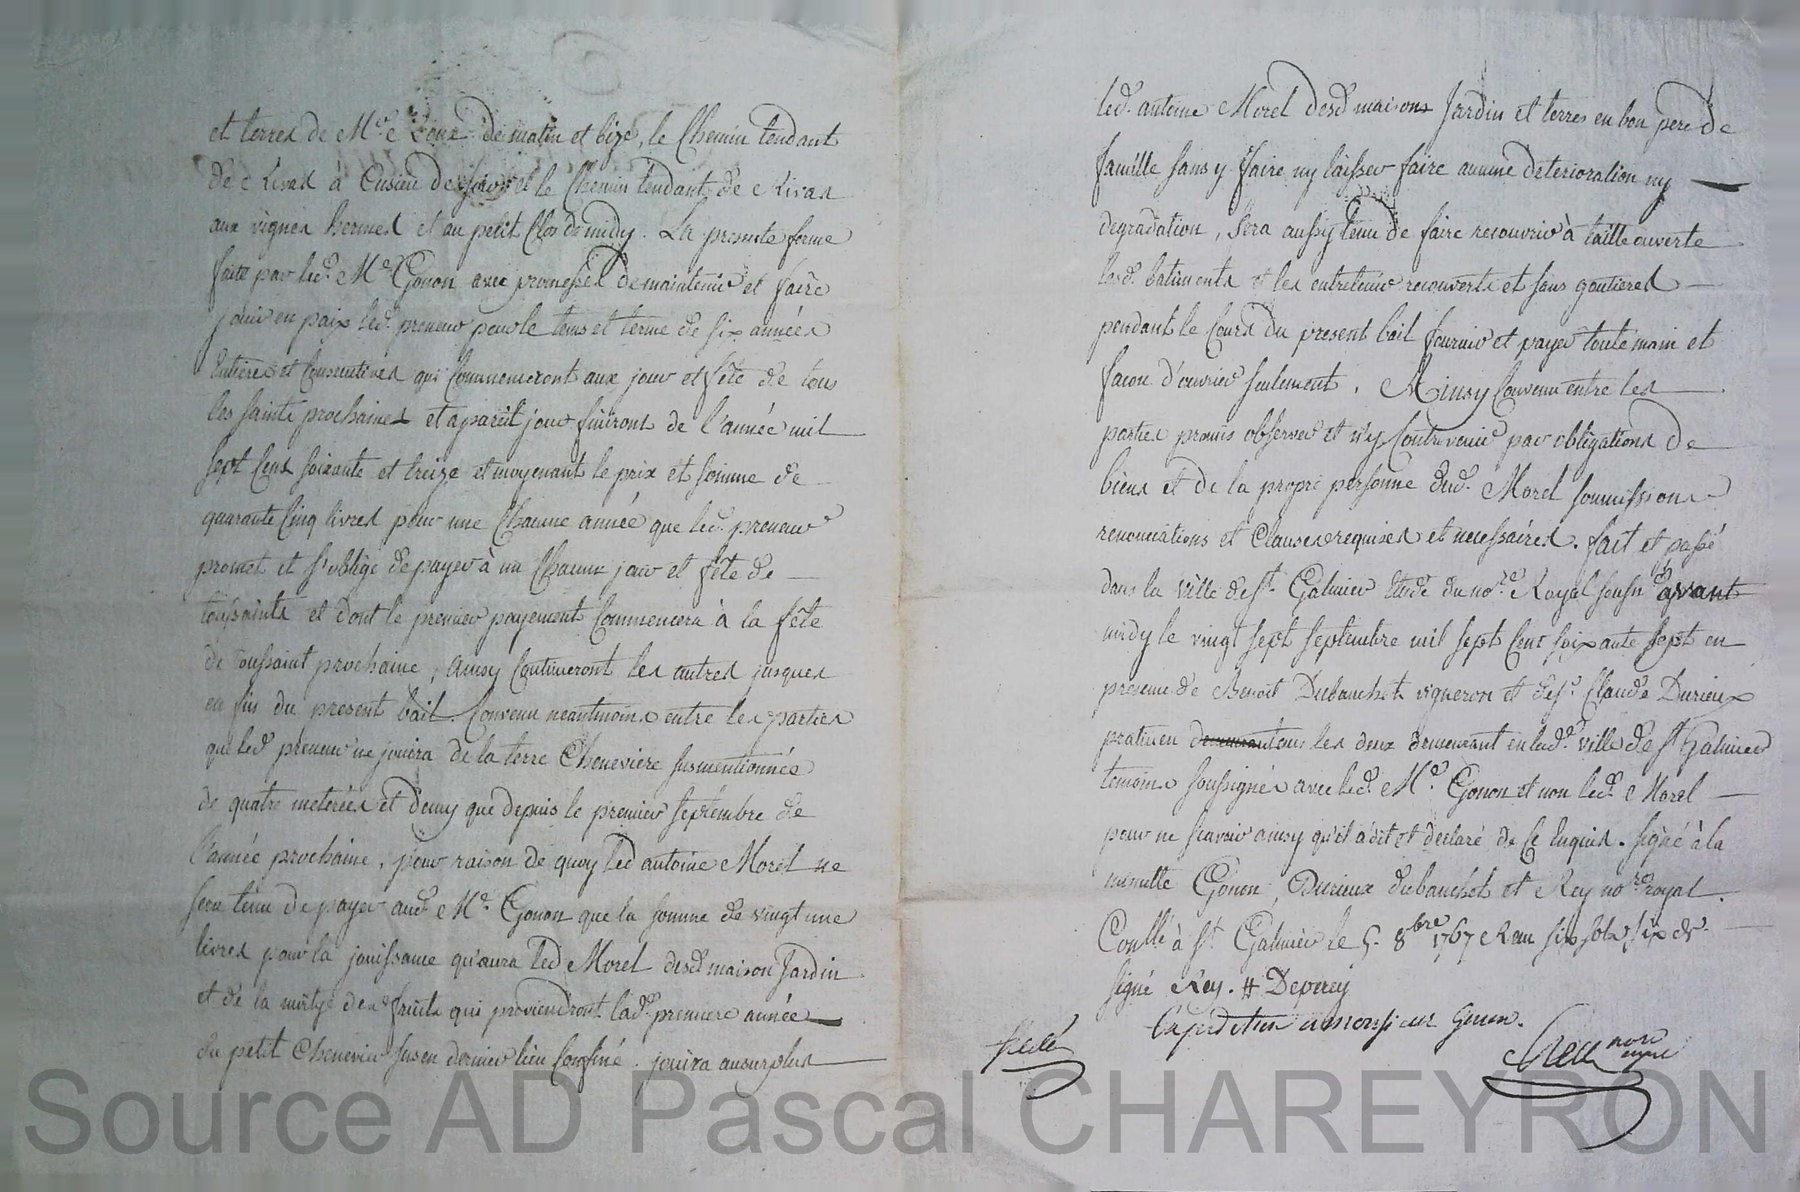 et terres de Me de matin et bize, le Chemin tendant
de Rivas à Cusieu de soir et le Chemin tendant de Rivas
aux vignes hermes et au petit Clos de midy. La presente ferme
faite par led. Me Gonon avec promesses de maintenir et faire
jouir en paix led. preneur pour le tems et terme de six années
entieres et Consecutives qui Commenceront aux jour et fête de tous
les saints prochaines et apareil jour finiront de l'année mil
sept Cens soixante et treize et moyenant le prix et somme de
quarante Cinq livres pour une Chacune année que led. preneur
promet et s'oblige de payer à un Chacun jour et fête de
toussaints et dont le premier payement Commencera à la fête
de toussaint prochaine, ainsy Continueront les autres jusques
en fin du present bail. Convenu neantmoins entre les parties
que led. preneur ne jouira de la terre Cheneviere susmentionnée
de quatre meterées et demy que depuis le premier septembre de
l'année prochaine, pour raison de quoy led antoine Morel ne
sera tenu de payer aud. Me. Gonon que la somme de vingt une
livres pour la jouissance qu'aura led Morel desd. maison Jardin
et de la moitye des fruits qui proviendront lad. premiere année
du petit Chenevier sus en dernier lieu Confiné. jouira ausurplus
led. antoine Morel desd. maisons Jardin et terres en bon pere de
famille sans y faire ny laisser faire aucune deterioration ny
degradation, sera aussy tenu de faire recouvrir à taille ouverte
lesd. batiments et les entretenir recouverts et sans goutieres
pendant le Cours du present bail fournir et payer toute main et
facon d'ouvrier seulement. Ainsy Convenu entre les
parties promis observer et n'y Contrevenir par obligations de
biens et de la propre personne dud. Morel soumissions
renonciations et Clauses requises et necessaires. fait et passé
dans la ville de st. Galmier Etude du nore. Royal soussné avant
midy le vingt sept septembre mil sept Cent soixante sept en
presence de Benoit Dubanchet vigneron et de sr. Claude Durieux
praticien tous les deux demeurant en lad. ville de st Galmier
temoins soussignés avec led. Me. Gonon et non led. Morel
pour ne scavoir ainsy qu'il a dit et declaré de Ce Enquis. signé à la
minutte Gonon, Durieux dubanchet et Rey nore. royal.
Conllé à st. Galmier le 5. 8bre 1767 R au six sols six dr.
signé Rey. # Deverey
Expedition a monsieur Gonon.
scelé